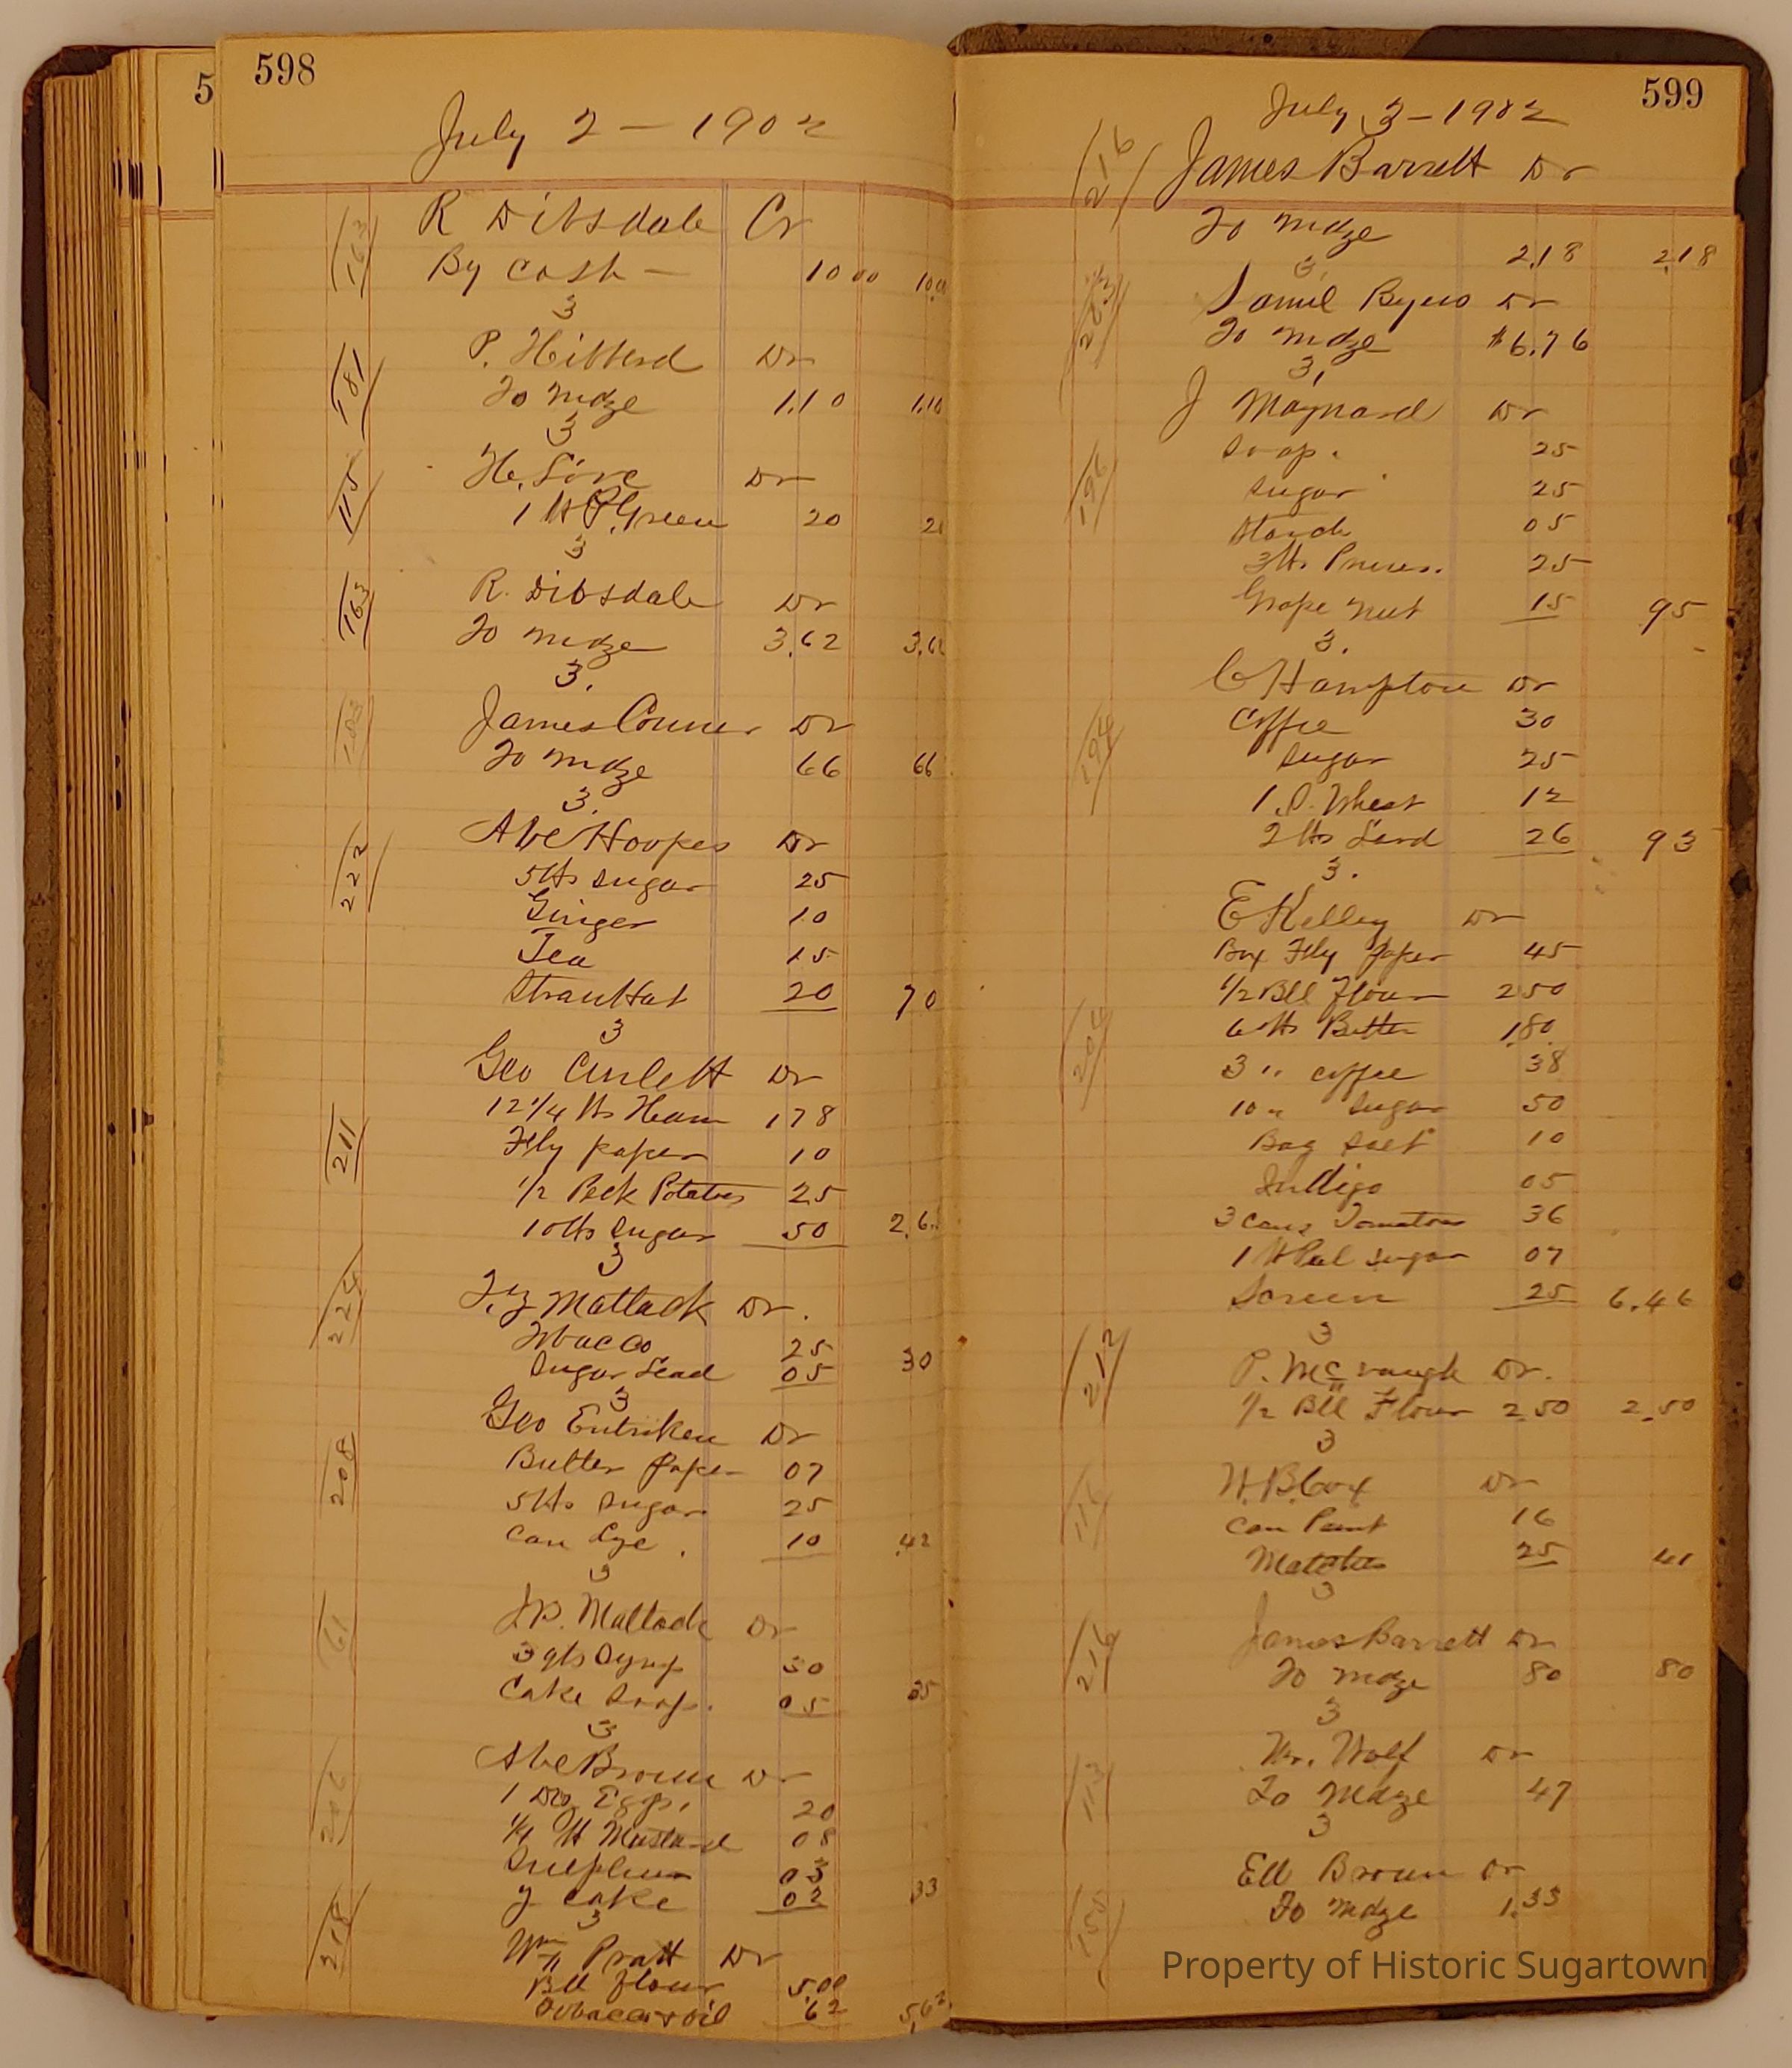 5
598
July 2 - 1902
163
R Dibsdale Cr
By Cash - 10 00 10.00
3
181
P. Hibberd Dr
To Mdze 1.10 1.10
3
115
H. Love Dr
1 lb P. Green 20 20
3
163
R. Dibsdale Dr
To Mdze 3.62 3.62
3.
183
James Conner Dr
To Mdze 66 66
3.
222
Abe Hoopes Dr
5 lbs Sugar 25
Ginger 10
Tea 15
Straw Hat 20 70
3
211
Geo Dr
12 1/4 lbs Ham 178
Fly paper 10
1/2 Peck Potatoes 25
10 lbs Sugar 50 2.6
3
224
Mattack Dr.
Tobacco 25
Sugar Lead 05 30
3
208
Geo Entriken Dr
Butter Paper 07
5 lbs Sugar 25
Can Lye. 10 .42
3
61
J.P. Mattack Dr
3 qts Syrup 30
Cake Soap. 05 35
3
206
Abe Brown Dr
1 Doz Eggs, 20
1/4 lb Mustard 08
Sulphur 03
Y Cake 02 33
3
218
Wm Pratt Dr
Bll Flour 5.00
Tobacco & oil 62 5.62
599
July 3 - 1902
216
James Barrett Dr
To Mdze 2.18 2.18
3.
223
Saml Byers Dr
To Mdze $6.76
3,
J Maynard Dr
196
Soap. 25
Sugar 25
Starch 05
3 lbs Prunes. 25
Grape Nut 15 95
3.
C Hampton Dr
194
Coffee 30
Sugar 25
1. P. Wheat 12
2 lbs Lard 26 93
3.
E Kelley Dr
204
Box Fly Paper 45
1/2 Bll Flour 250
6 lbs Butter 1.80
3 " coffee 38
10 " Sugar 50
Bag Salt 10
Indigo 05
3 cans Tomatoes 36
1 lb Pul Sugar 07
Screen 25 6.46
3
212
P. McVaugh Dr.
1/2 Bll Flour 2.50 2.50
3
116
H.B. Cox Dr
Can Paint 16
Matches 25 41
3
216
James Barrett Dr
To Mdze 80 80
3
113
Wm. Wolf Dr
To Mdze 47
3
100
Ell Brown Dr
To Mdze 1.33
Property of Historic Sugartown